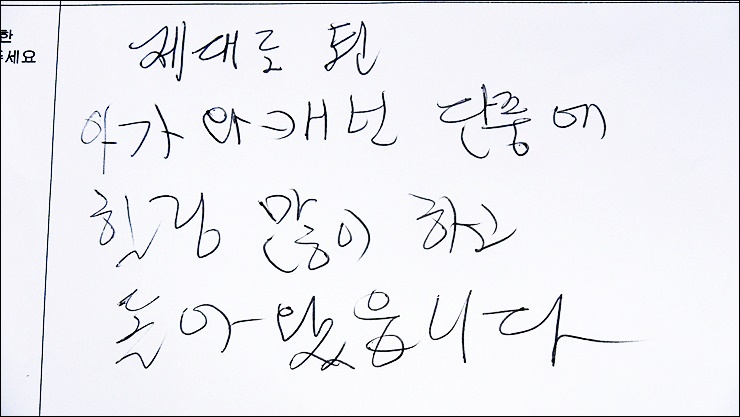 한
세요
제대로 된
아가와 캐년 단풍에
힐링 많이 하고
돌아 왔읍니다